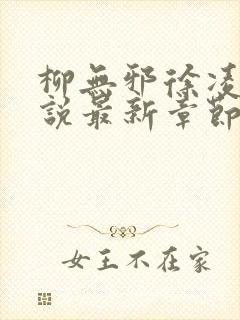 柳無邪徐凌
說最新章節
女王不在家